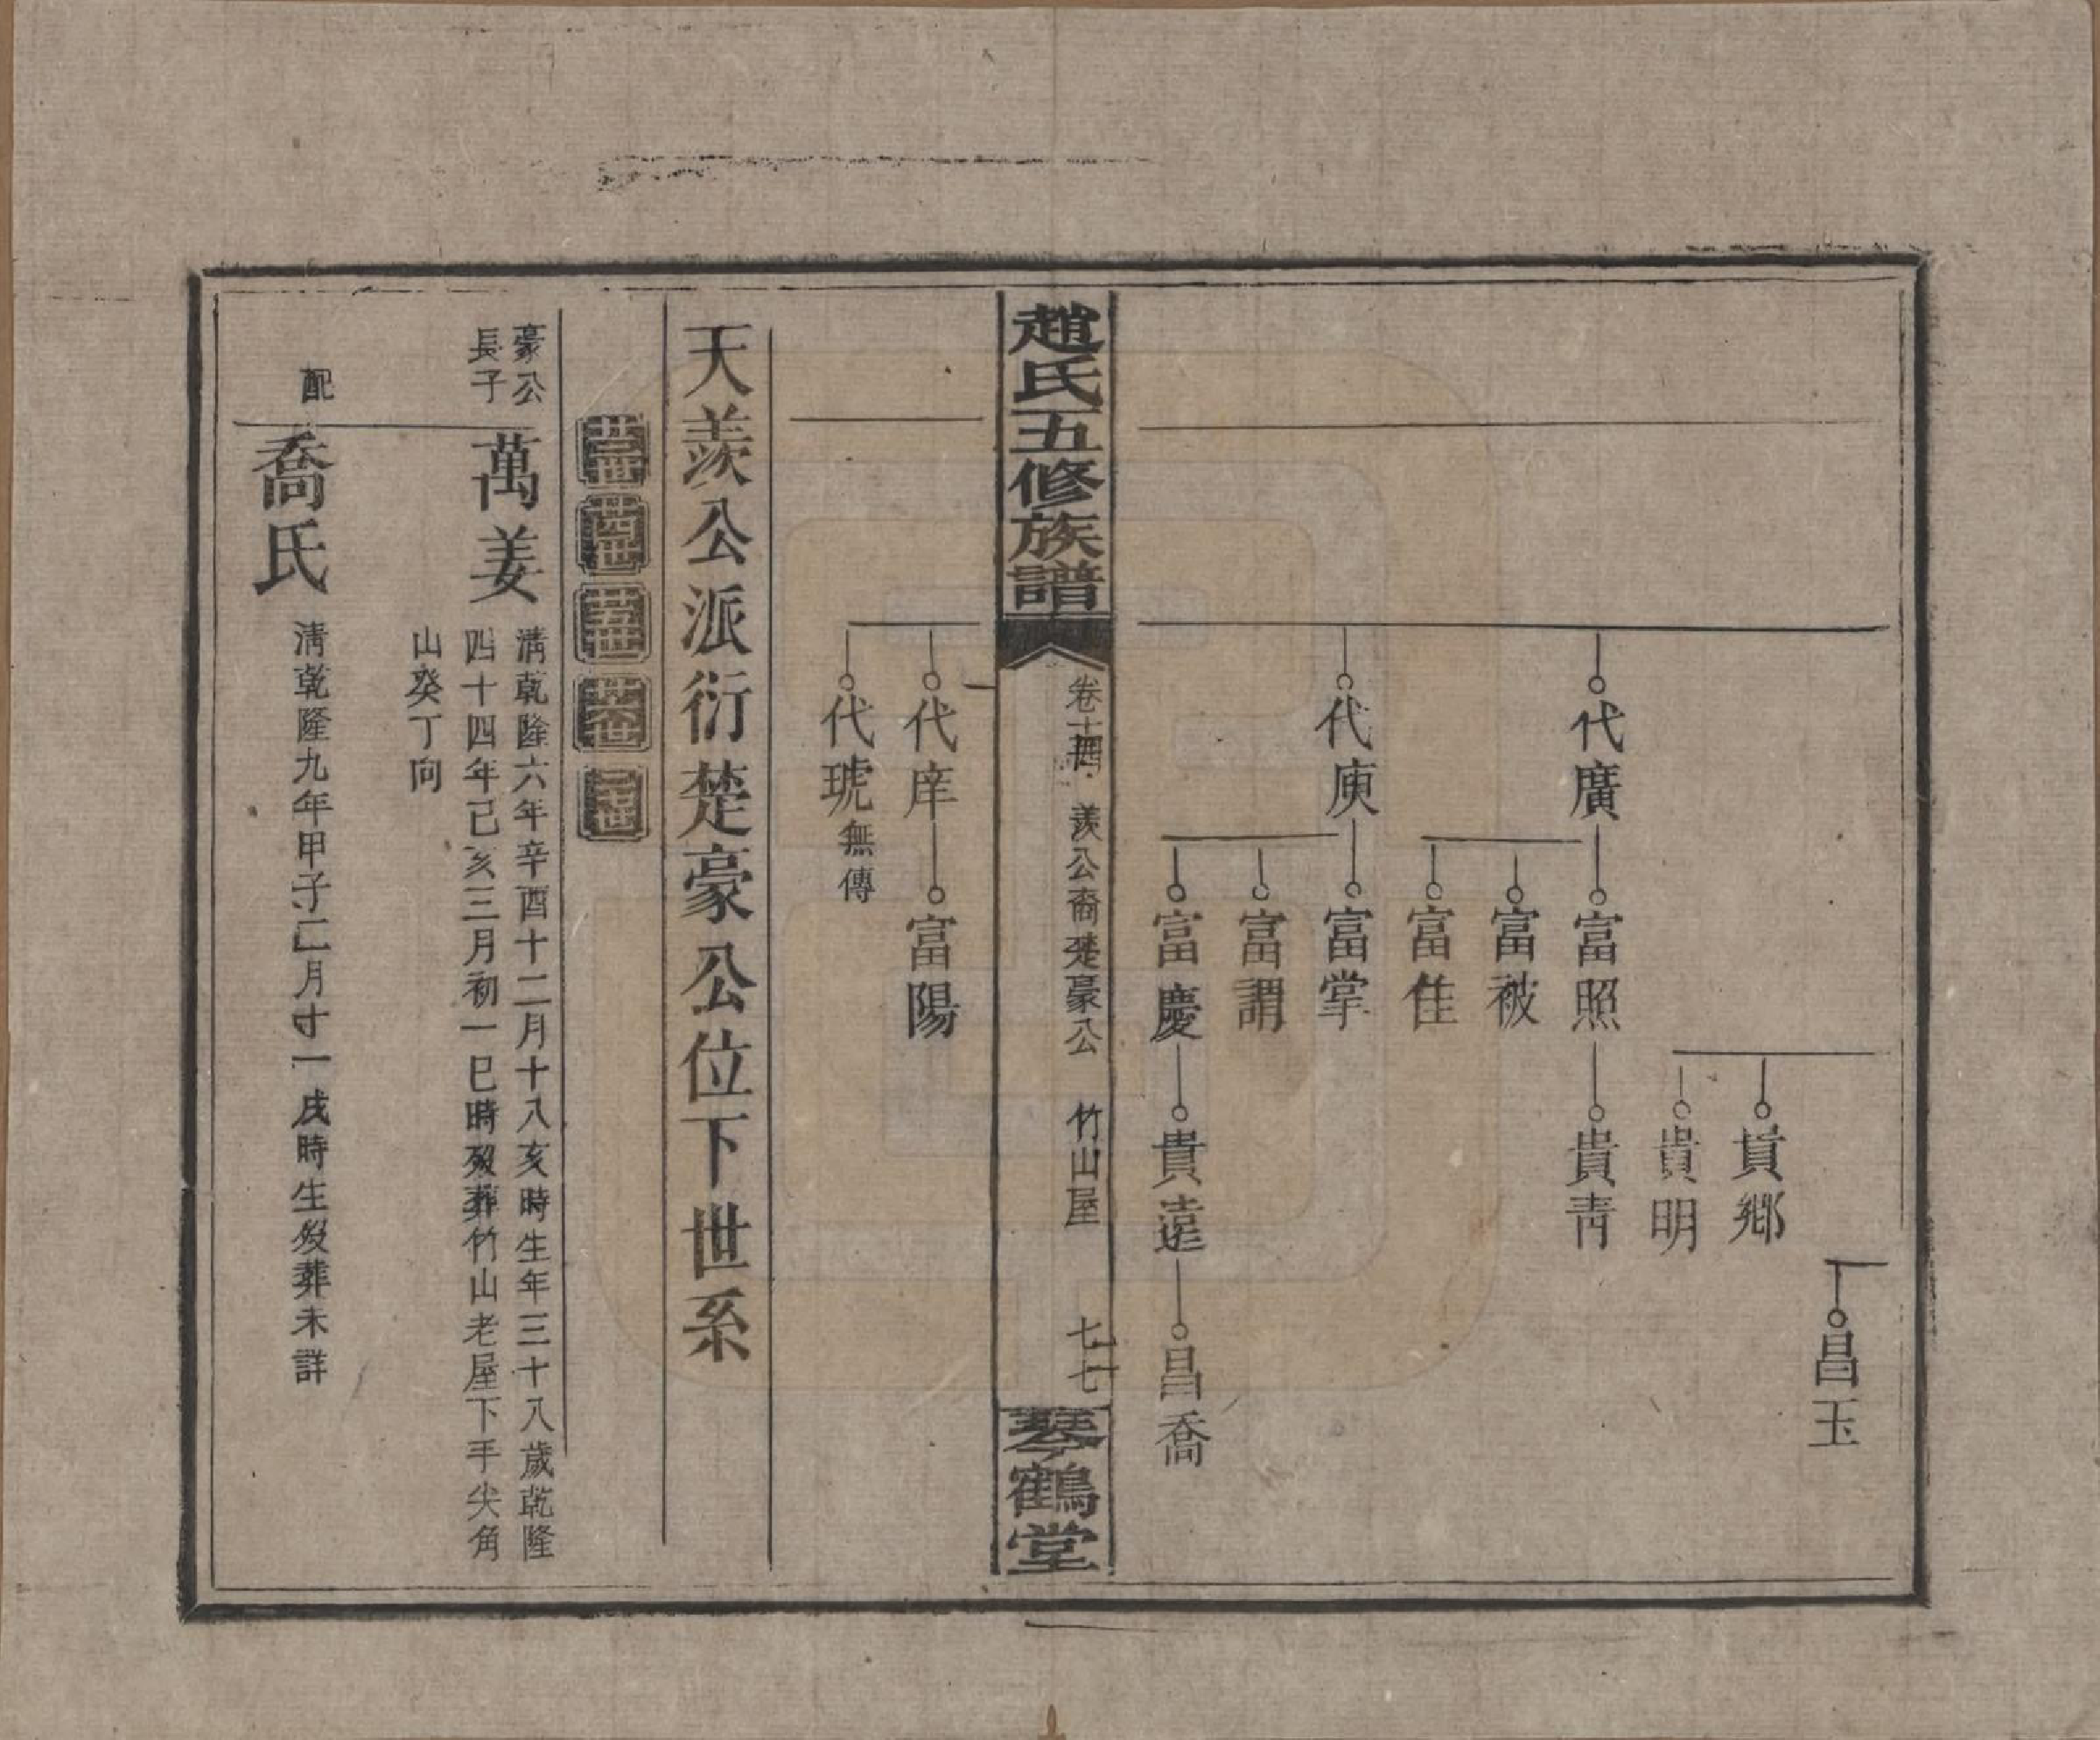 昌玉
貴鄉
貴明
代廣
富照
貴青
富被
富佳
代庚
富掌
富謂
富慶
貴遠
昌喬
趙氏五修族譜
卷十四
羨公裔楚豪公
竹山屋
七七
琴鶴堂
代庠
富陽
代琥無傳
天羨公派衍楚豪公位下世系
廿三世
廿四世
廿五世
廿六世
廿七世
豪公
長子
萬姜
清乾隆六年辛酉十二月十八亥時生年三十八歲乾隆
四十四年己亥三月初一巳時歿葬竹山老屋下手尖角
山癸丁向
配
喬氏
清乾隆九年甲子二月十一戌時生歿葬未詳